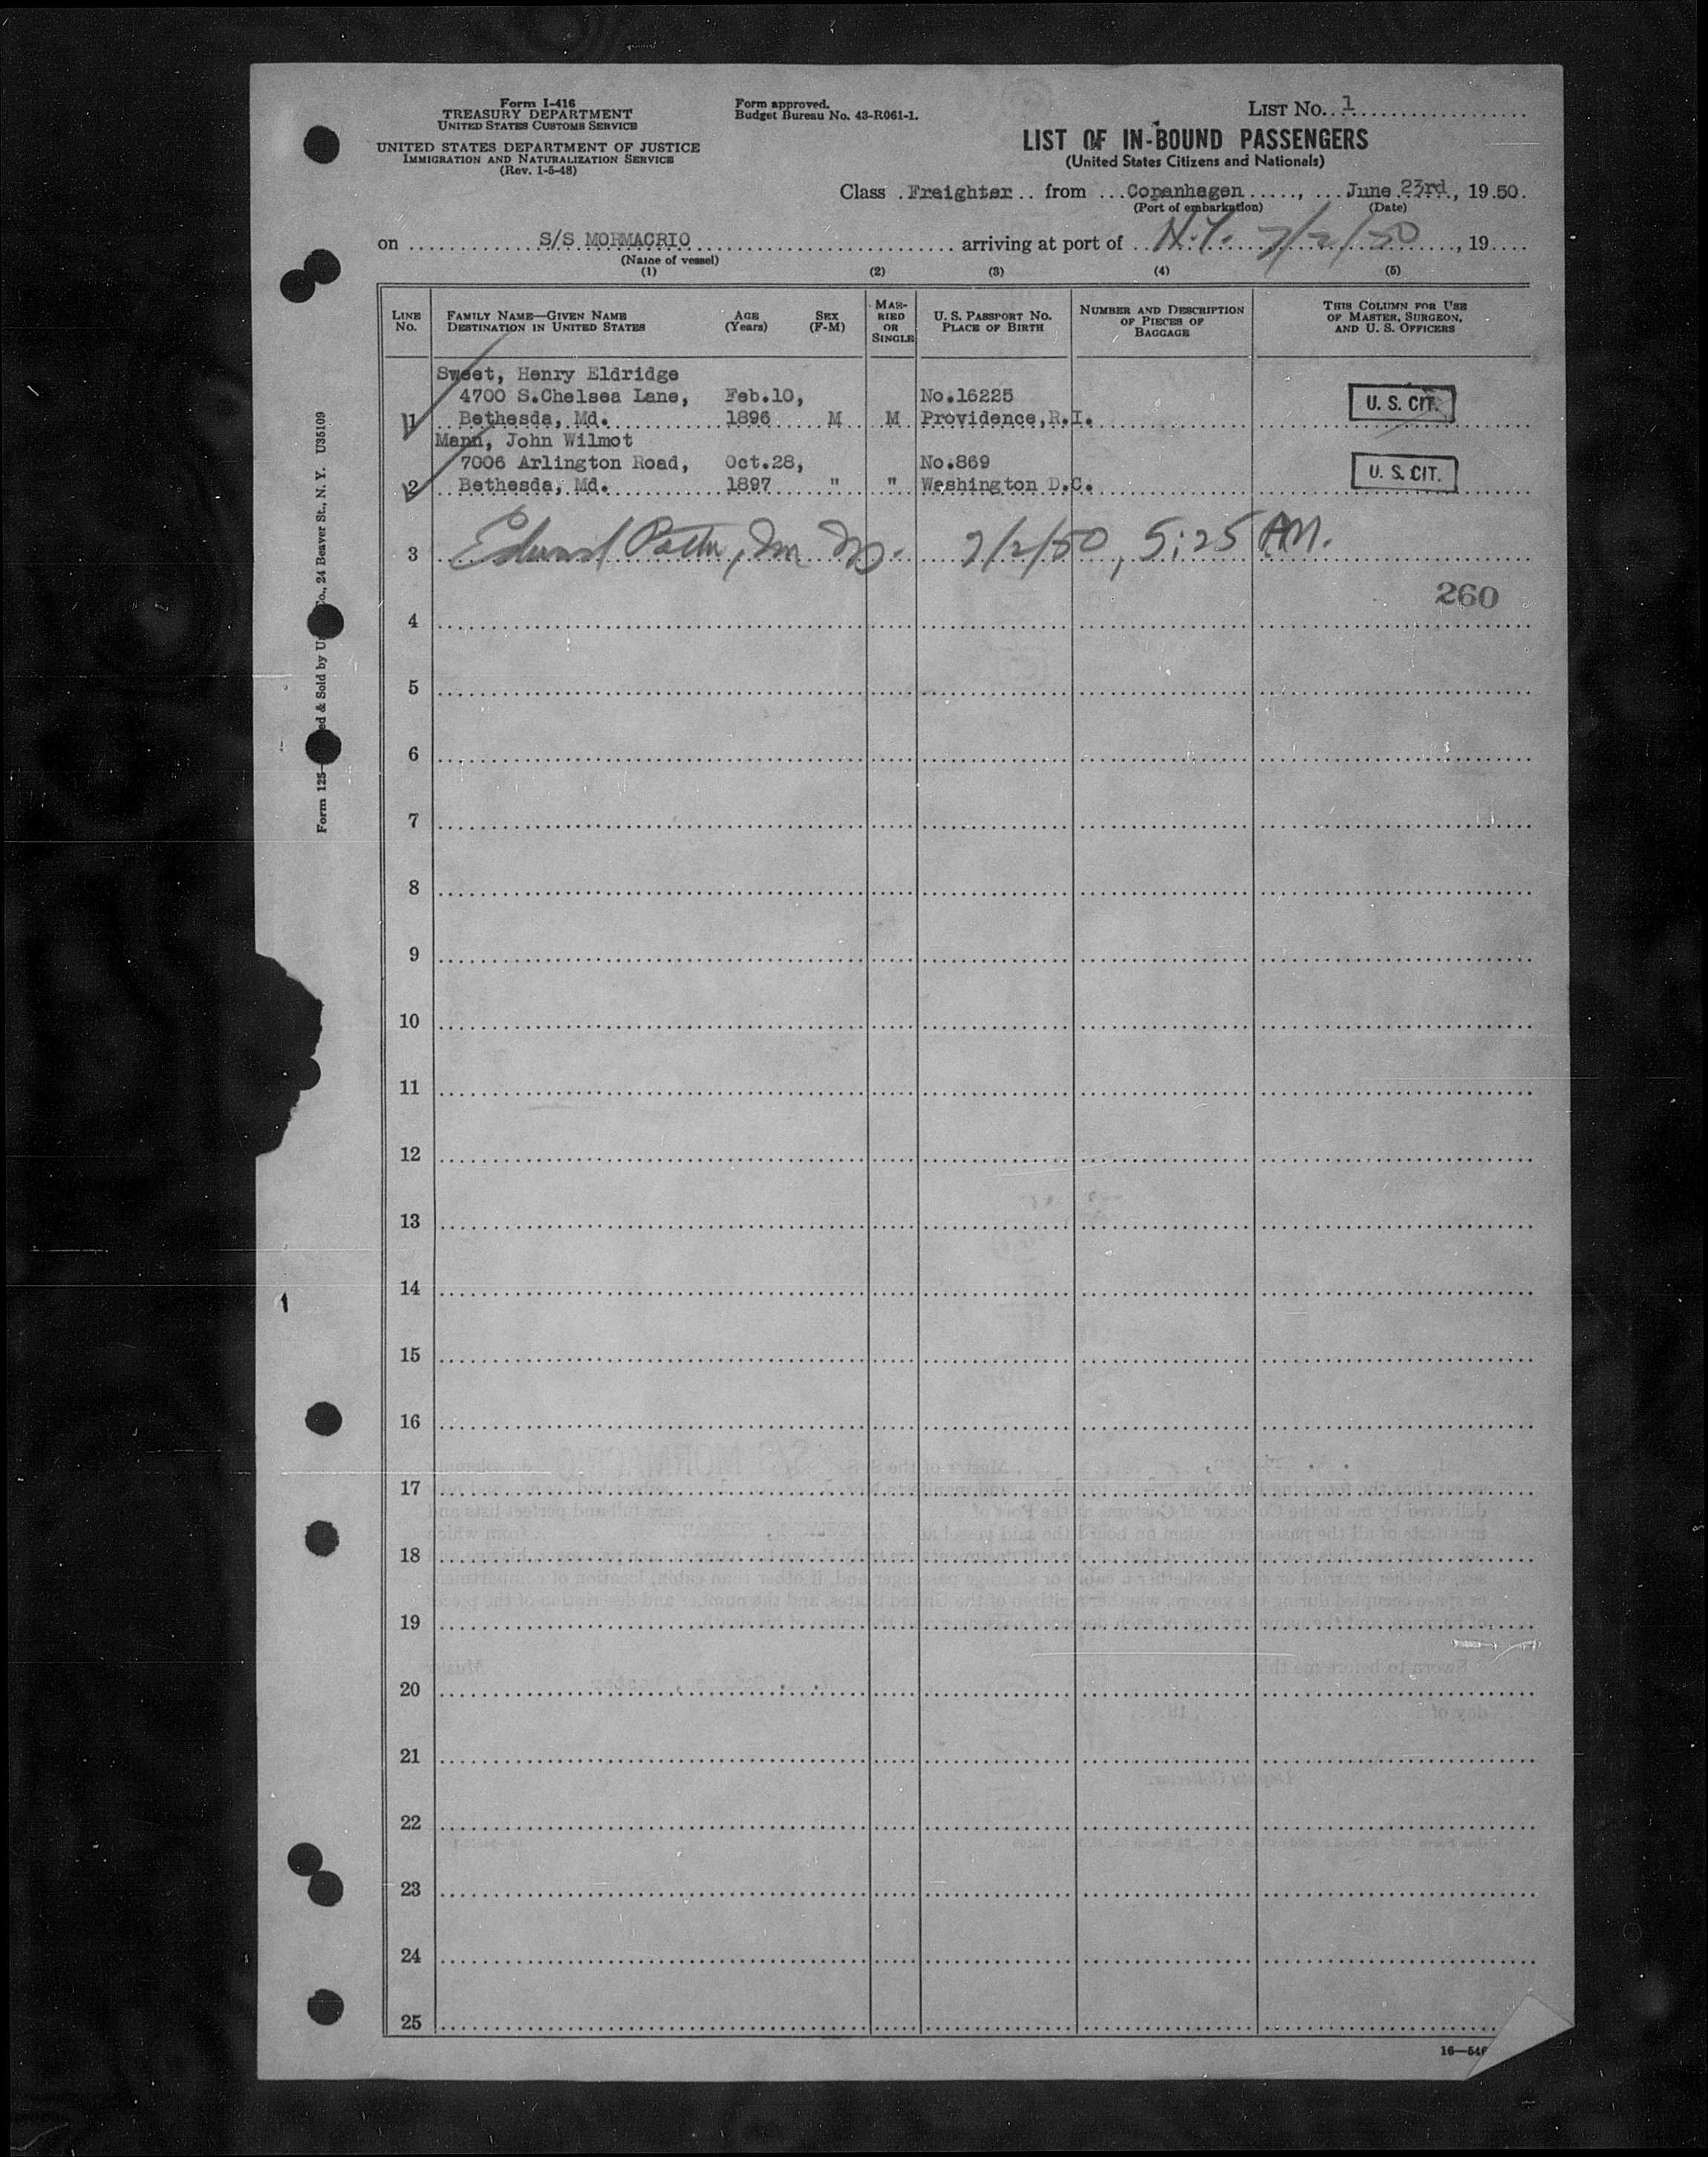 Form I-416
TREASURY DEPARTMENT
UNITED STATES CUSTOMS SERVICE
UNITED STATES DEPARTMENT OF JUSTICE
IMMIGRATION AND NATURALIZATION SERVICE
(Rev. 1-5-48)
Form approved.
Budget Bureau No. 43-R061-1.
LIST No. 1
LIST OF IN-BOUND PASSENGERS
(United States Citizens and Nationals)
Class Freighter from Copenhagen, June 23rd, 1950.
(Port of embarkation) (Date)
on S/S MORMACRIO arriving at port of N.Y. 7/2/50, 19
(Name of vessel)
(1) (2) (3) (4) (5)
LINE No. FAMILY NAME—GIVEN NAME DESTINATION IN UNITED STATES AGE (Years) SEX (F-M) MARRIED OR SINGLE U. S. PASSPORT No. PLACE OF BIRTH NUMBER AND DESCRIPTION OF PIECES OF BAGGAGE THIS COLUMN FOR USE OF MASTER, SURGEON, AND U. S. OFFICERS
Sweet, Henry Eldridge
4700 S.Chelsea Lane, Feb.10, No.16225 U. S. CIT.
1 Bethesda, Md. 1896 M M Providence,R.I.
Mann, John Wilmot
7006 Arlington Road, Oct.28, No.869 U. S. CIT.
2 Bethesda, Md. 1897 " " Washington D.C.
3 Edward 7/2/50, 5:25 AM.
260
4
5
6
7
8
9
10
11
12
13
14
15
16
17
18
19
20
21
22
23
24
25
Form 125 ed & Sold by U Co., 24 Beaver St., N. Y. U35109
1
16—546